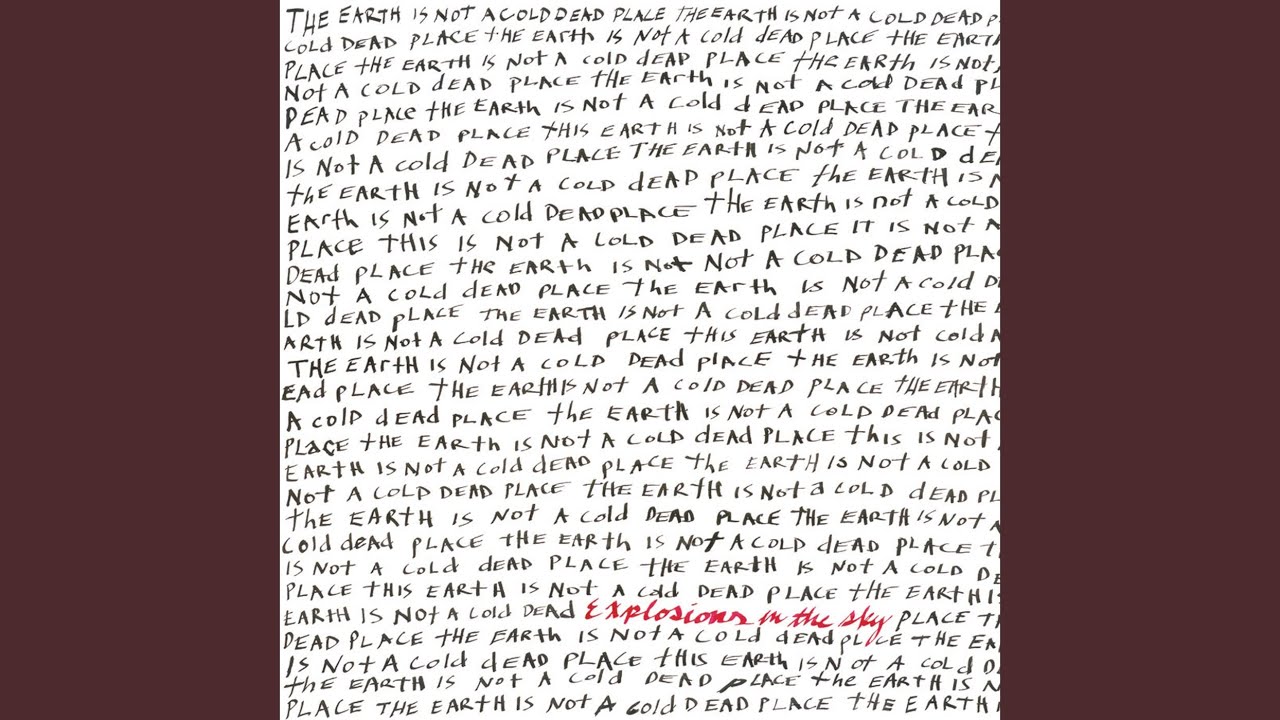 THE EARTH IS NOT A COLD DEAD PLACE THE EARTH IS NOT A COLD DEAD P
COLD DEAD PLACE tHE EARth IS Not A Cold dEAD PLACE tHE EARTH
PLACE tHE EARTH IS Not A Cold dEAD PLACE tHE EARth IS Not
Not A COLD dEAD PLACE tHE EARth IS Not A Cold DEAd PL
DEAD place tHE EArth IS Not A Cold dEAD PLACE THE EAR
A cold DEAD PLACE tHIS EARTH IS Not A Cold DEAD PLACE t
IS Not A cold DEAD PLACE THE EARTH IS Not A COLD dE
thE EARtH IS Not A COLD dEAD PLACE thE EARTH IS N
EArth IS Not A cold DEAD PLACE tHE EARth is not A COLD
PLACE tHIS IS Not A COLD DEAD PLACE IT IS Not A
DEAd pLACE tHe EARth IS Not Not A COLD DEAD PLA
Not A COLd dEAD PLACE thE EArth is Not A Cold D
LD dEAD pLACE THE EARTH IS Not A Cold dEAD pLACE tHE
ARTH IS Not A Cold DEAd PLACE tHIS EARTH IS Not cold A
THE EArtH IS Not A COLD DEad plACE tHE EARth IS Not
EAd pLACE tHE EARtH IS Not A COlD DEAD PLACE tHE EARtH
A COlD dEAd PLACE thE EARth IS Not A COLD DEAd PLAC
PLACE tHE EARth IS Not A COLD dEAd PLACE this IS Not
EARTH IS Not A Cold dEAD pLACE the EARTH IS Not A COLD
Not A COLD DEAD PLACE tHE EARTH IS Not a COLD dEAD PL
tHE EARTH IS Not A Cold DEAD PLACE THE EARTH IS Not A
COld dEAd PLACE tHE EARth IS Not A COLD dEAD PLACE t
IS Not A Cold dEAD PLACE tHE EARtH IS Not A COLD DE
PLACE THIS EARtH IS Not A Cold DEAD PLACE tHE EARTH I
EARtH IS Not A Cold DEAD Explosions in the sky PLACE T
DEAD PLACE tHE EARth IS Not A COLD dEAd pLACE tHE EA
IS Not A Cold dEAD PLACE tHIS EARth IS Not A COLD D
thE EARTH IS Not A Cold DEAD pLACE thE EARTH IS N
PLACE THE EARTH IS Not A Cold DEAD PLACE tHE EARTH